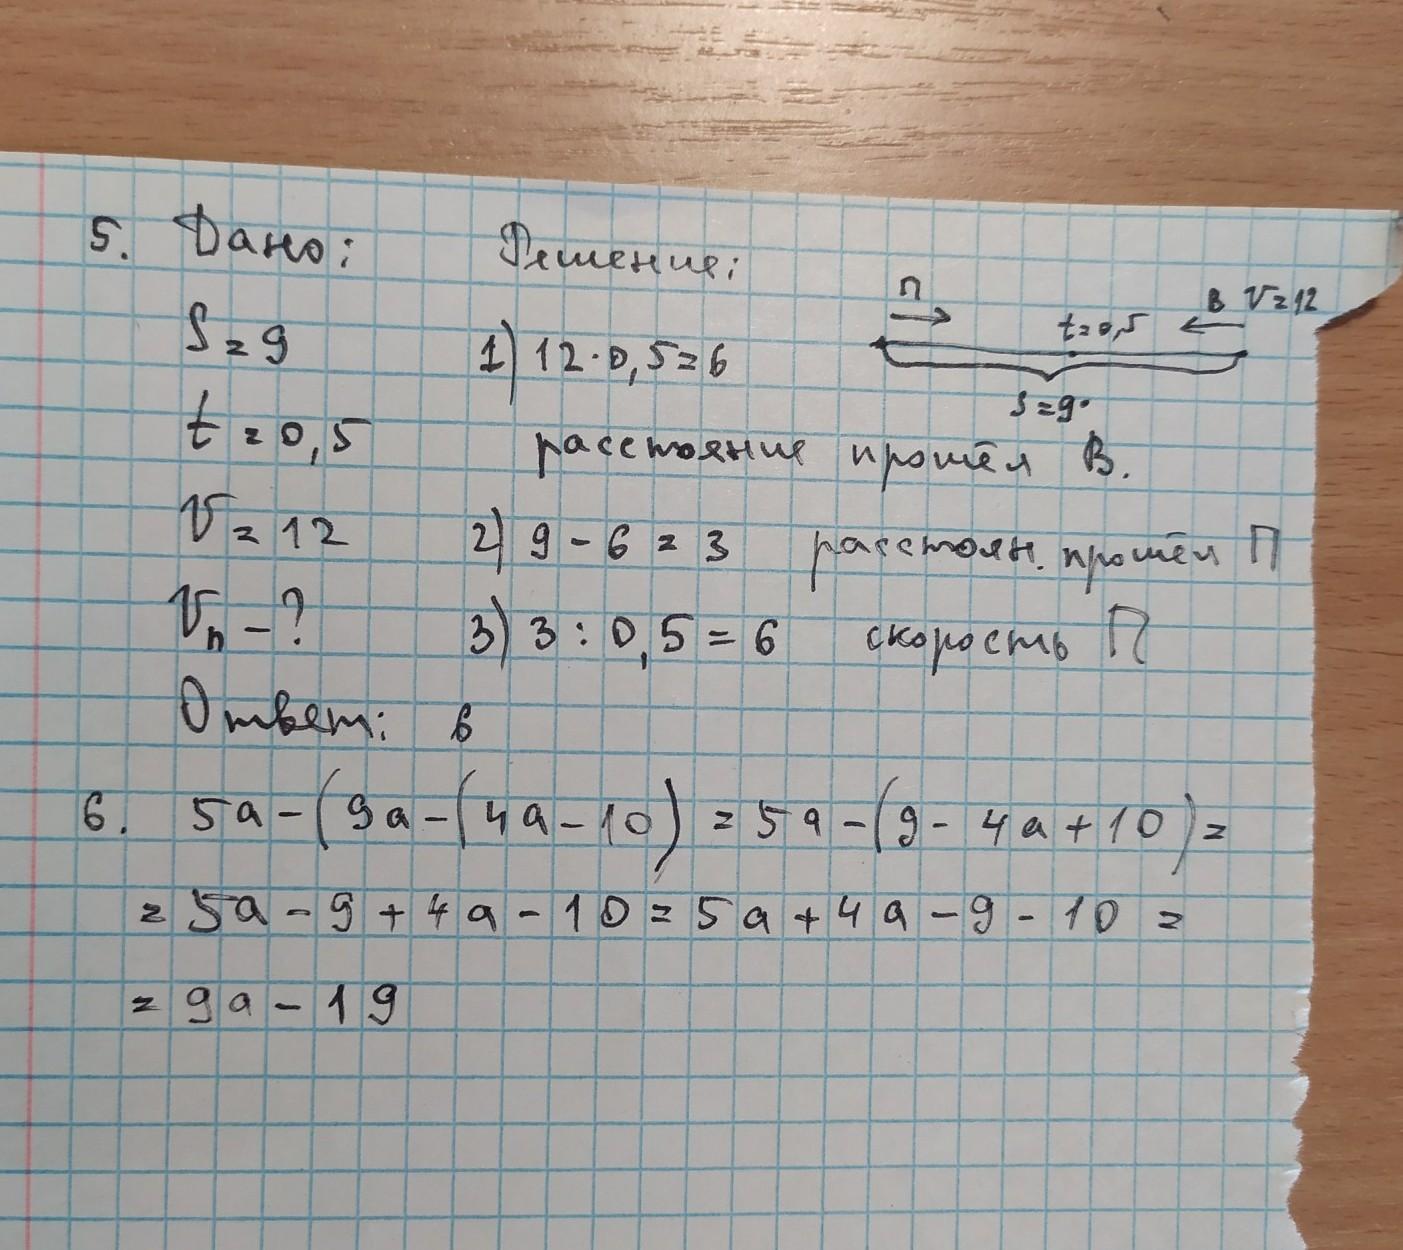 5. Дано: Решение:
П В V=12
t=0,5
S=9
S=9 1) 12·0,5=6
t=0,5 расстояние прошёл В.
V=12 2) 9-6=3 расстоян. прошёл П
Vп-? 3) 3:0,5=6 скорость П
Ответ: 6
6. 5a-(9a-(4a-10)=5a-(9-4a+10)=
=5a-9+4a-10=5a+4a-9-10=
=9a-19